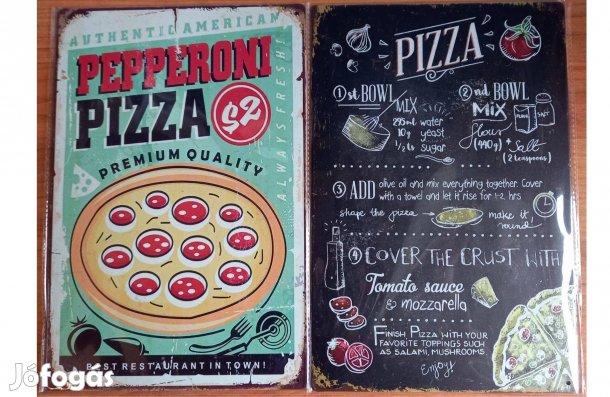 AUTHENTIC AMERICAN
PEPPERONI
PIZZA
$2
ALWAYS FRESH!
PREMIUM QUALITY
BEST RESTAURANT IN TOWN!
PIZZA
1st BOWL
MIX
295ml water
10g yeast
1/2 ts sugar
2nd BOWL
MIX
flour
(440g)
FLOUR
SALT
+ Salt
(2 teaspoons)
3 ADD olive oil and mix everything together. Cover
with a towel and let it rise for 1-2 hrs
shape the pizza
make it
round!
4 COVER THE CRUST WITH
Tomato sauce
& mozzarella
FINISH PIZZA WITH YOUR
FAVORITE TOPPINGS SUCH
AS SALAMI, MUSHROOMS
Enjoy!
Jófogás